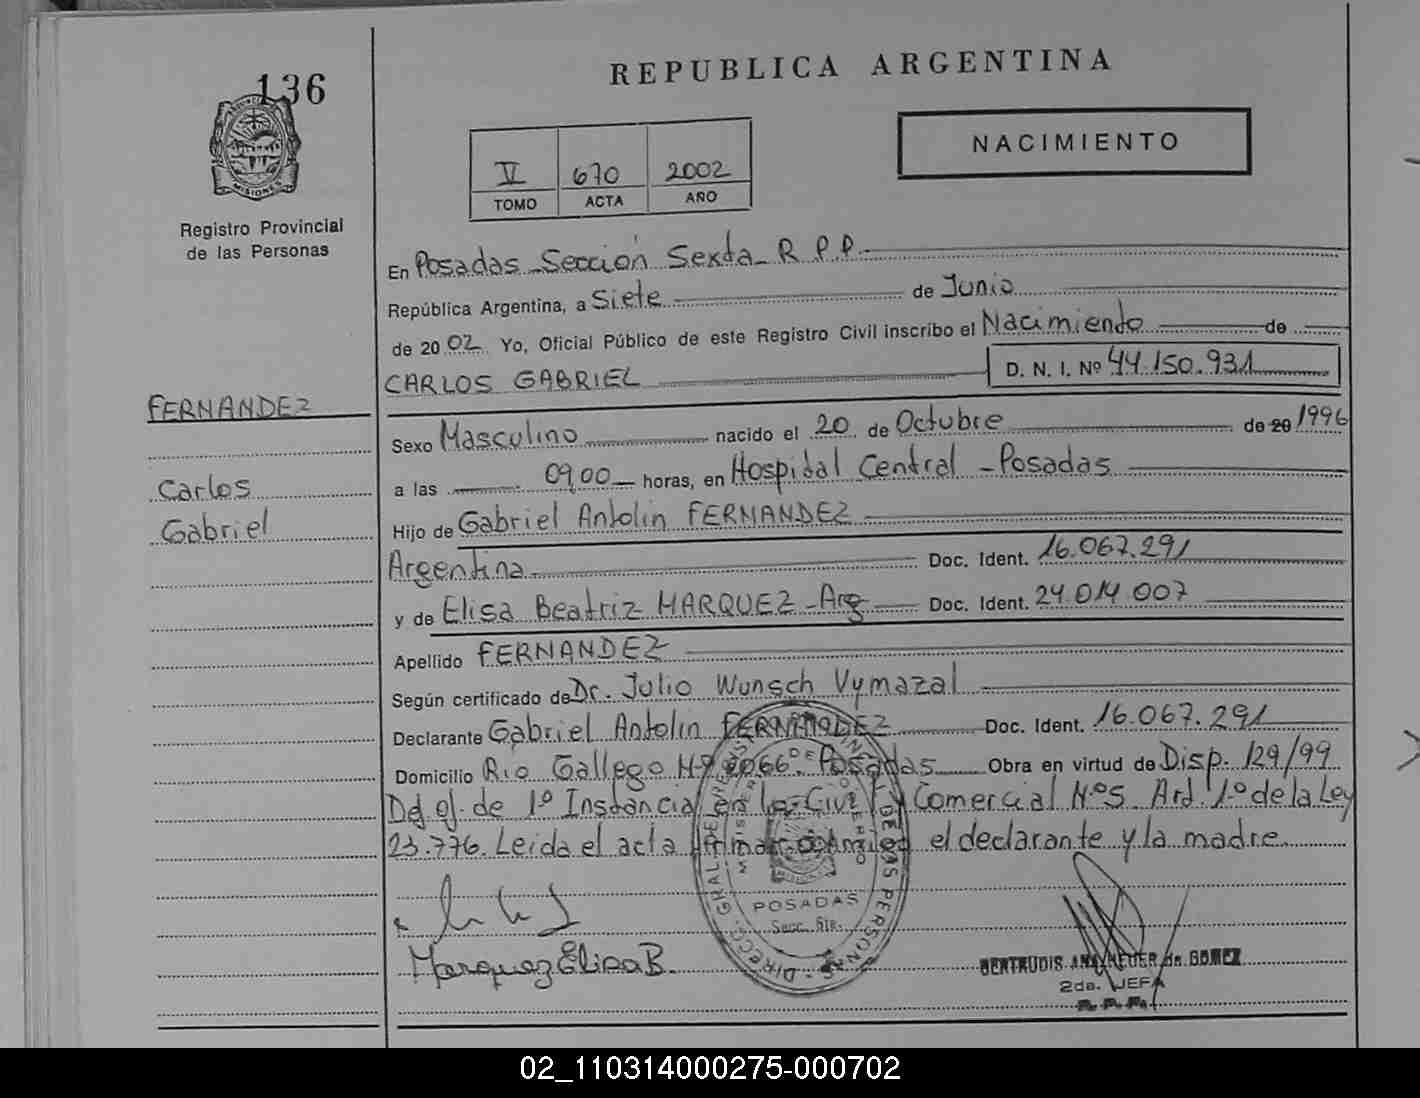 136
MISIONES
Registro Provincial
de las Personas
FERNANDEZ
Carlos
Gabriel
REPUBLICA ARGENTINA
NACIMIENTO
V 670 2002
TOMO ACTA AÑO
En Posadas - Sección Sexta - R.P.P.
República Argentina, a Siete de Junio
de 2002 Yo, Oficial Público de este Registro Civil inscribo el Nacimiento de
CARLOS GABRIEL D. N. I. Nº 44.150.931
Sexo Masculino nacido el 20 de Octubre de 20 1996
a las 09,00 horas, en Hospital Central - Posadas
Hijo de Gabriel Antolin FERNANDEZ
Argentina Doc. Ident. 16.067.291
y de Elisa Beatriz MARQUEZ - Arg Doc. Ident. 24.014.007
Apellido FERNANDEZ
Según certificado de Dr. Julio Wunsch Vymazal
Declarante Gabriel Antolin FERNANDEZ Doc. Ident. 16.067.291
Domicilio Rio Gallego Nº 2066 Posadas Obra en virtud de Disp. 129/99
de 1º Instancia en lo Civil y Comercial Nº5 Art. 1º de la Ley
23.776. Leida el acta el declarante y la madre
Marquez Elisa B.
POSADAS
Secc. 6ta.
GERTRUDIS ANA de GOMEZ
2da. JEFA
R.P.P.
02_110314000275-000702